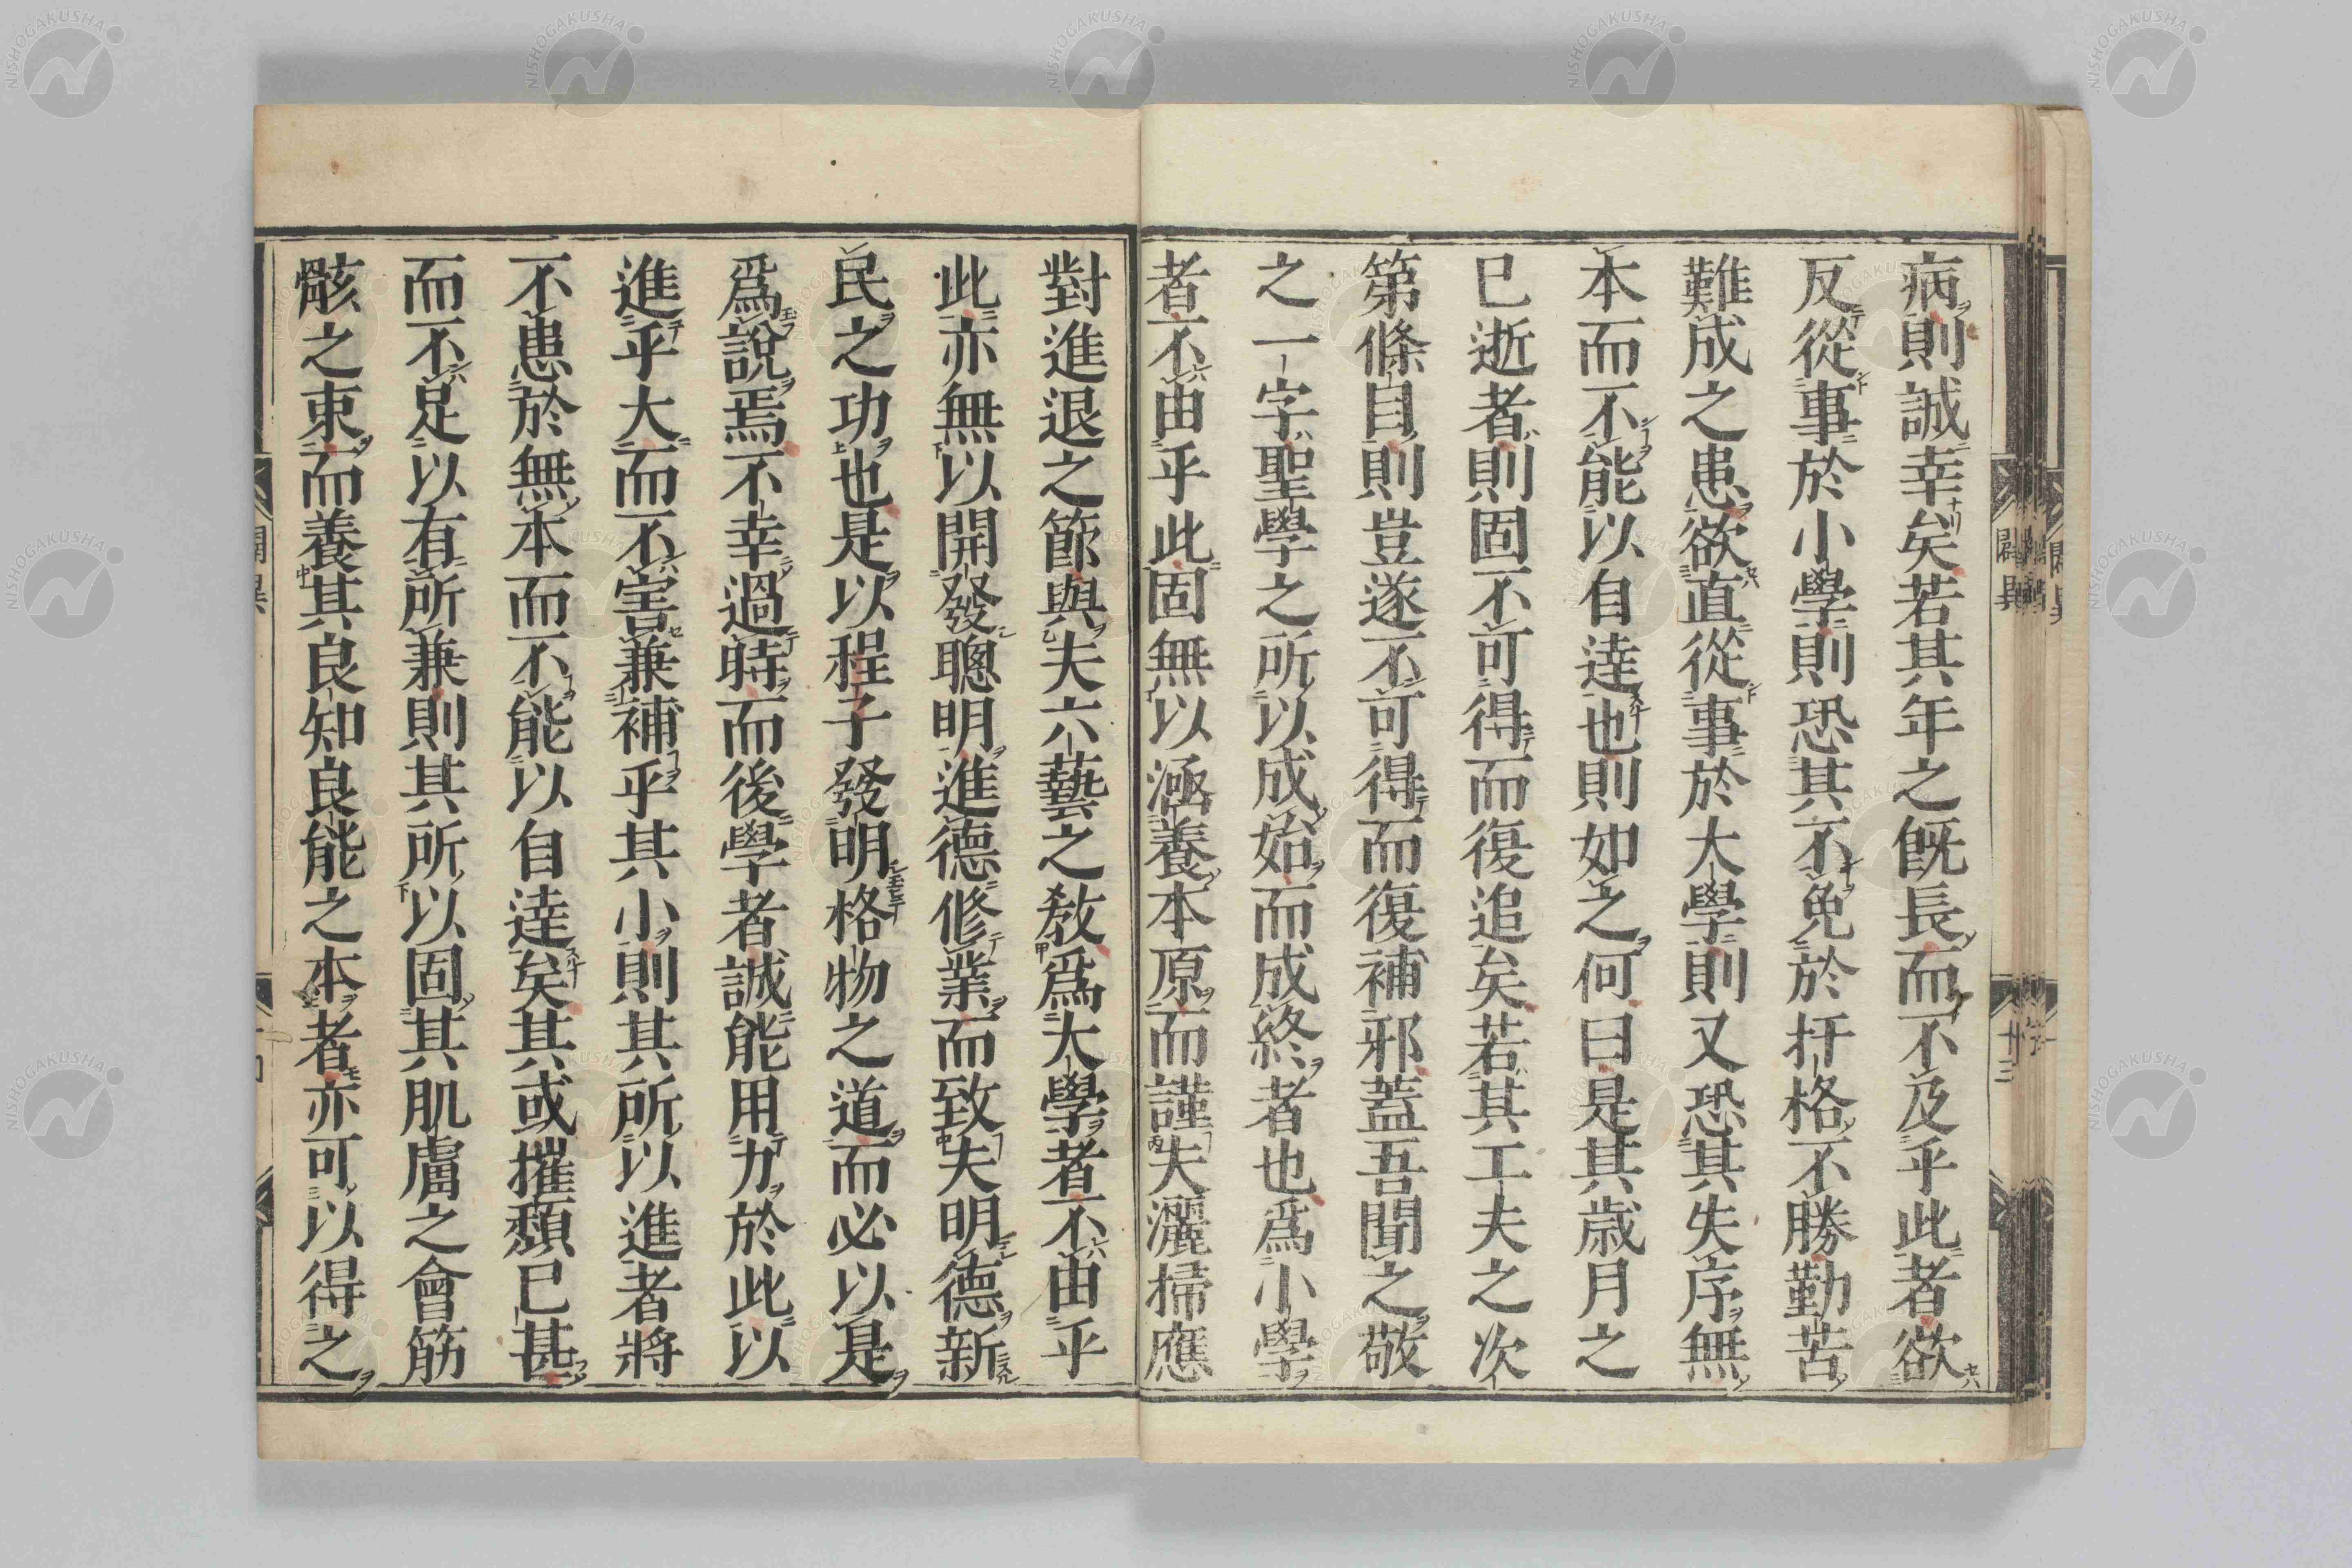 病則誠幸矣若其年之旣長而不及乎此者欲
反從事於小學則恐其不免於扞格不勝勤苦
難成之患欲直從事於大學則又恐其失序無
本而不能以自達也則如之何曰是其歳月之
已逝者則固不可得而復追矣若其工夫之次
第條目則豈遂不可得而復補邪蓋吾聞之敬
之一字聖學之所以成始而成終者也爲小學
者不由乎此固無以涵養本原而謹夫灑掃應
對進退之節與夫六藝之敎爲大學者不由乎
此亦無以開發聰明進德修業而致夫明德新
民之功也是以程子發明格物之道而必以是
爲說焉不幸過時而後學者誠能用力於此以
進乎大而不害兼補乎其小則其所以進者將
不患於無本而不能以自達矣其或摧頽已甚
而不足以有所兼則其所以固其肌膚之會筋
骸之束而養其良知良能之本者亦可以得之
闢異
廿三
NISHOGAKUSHA